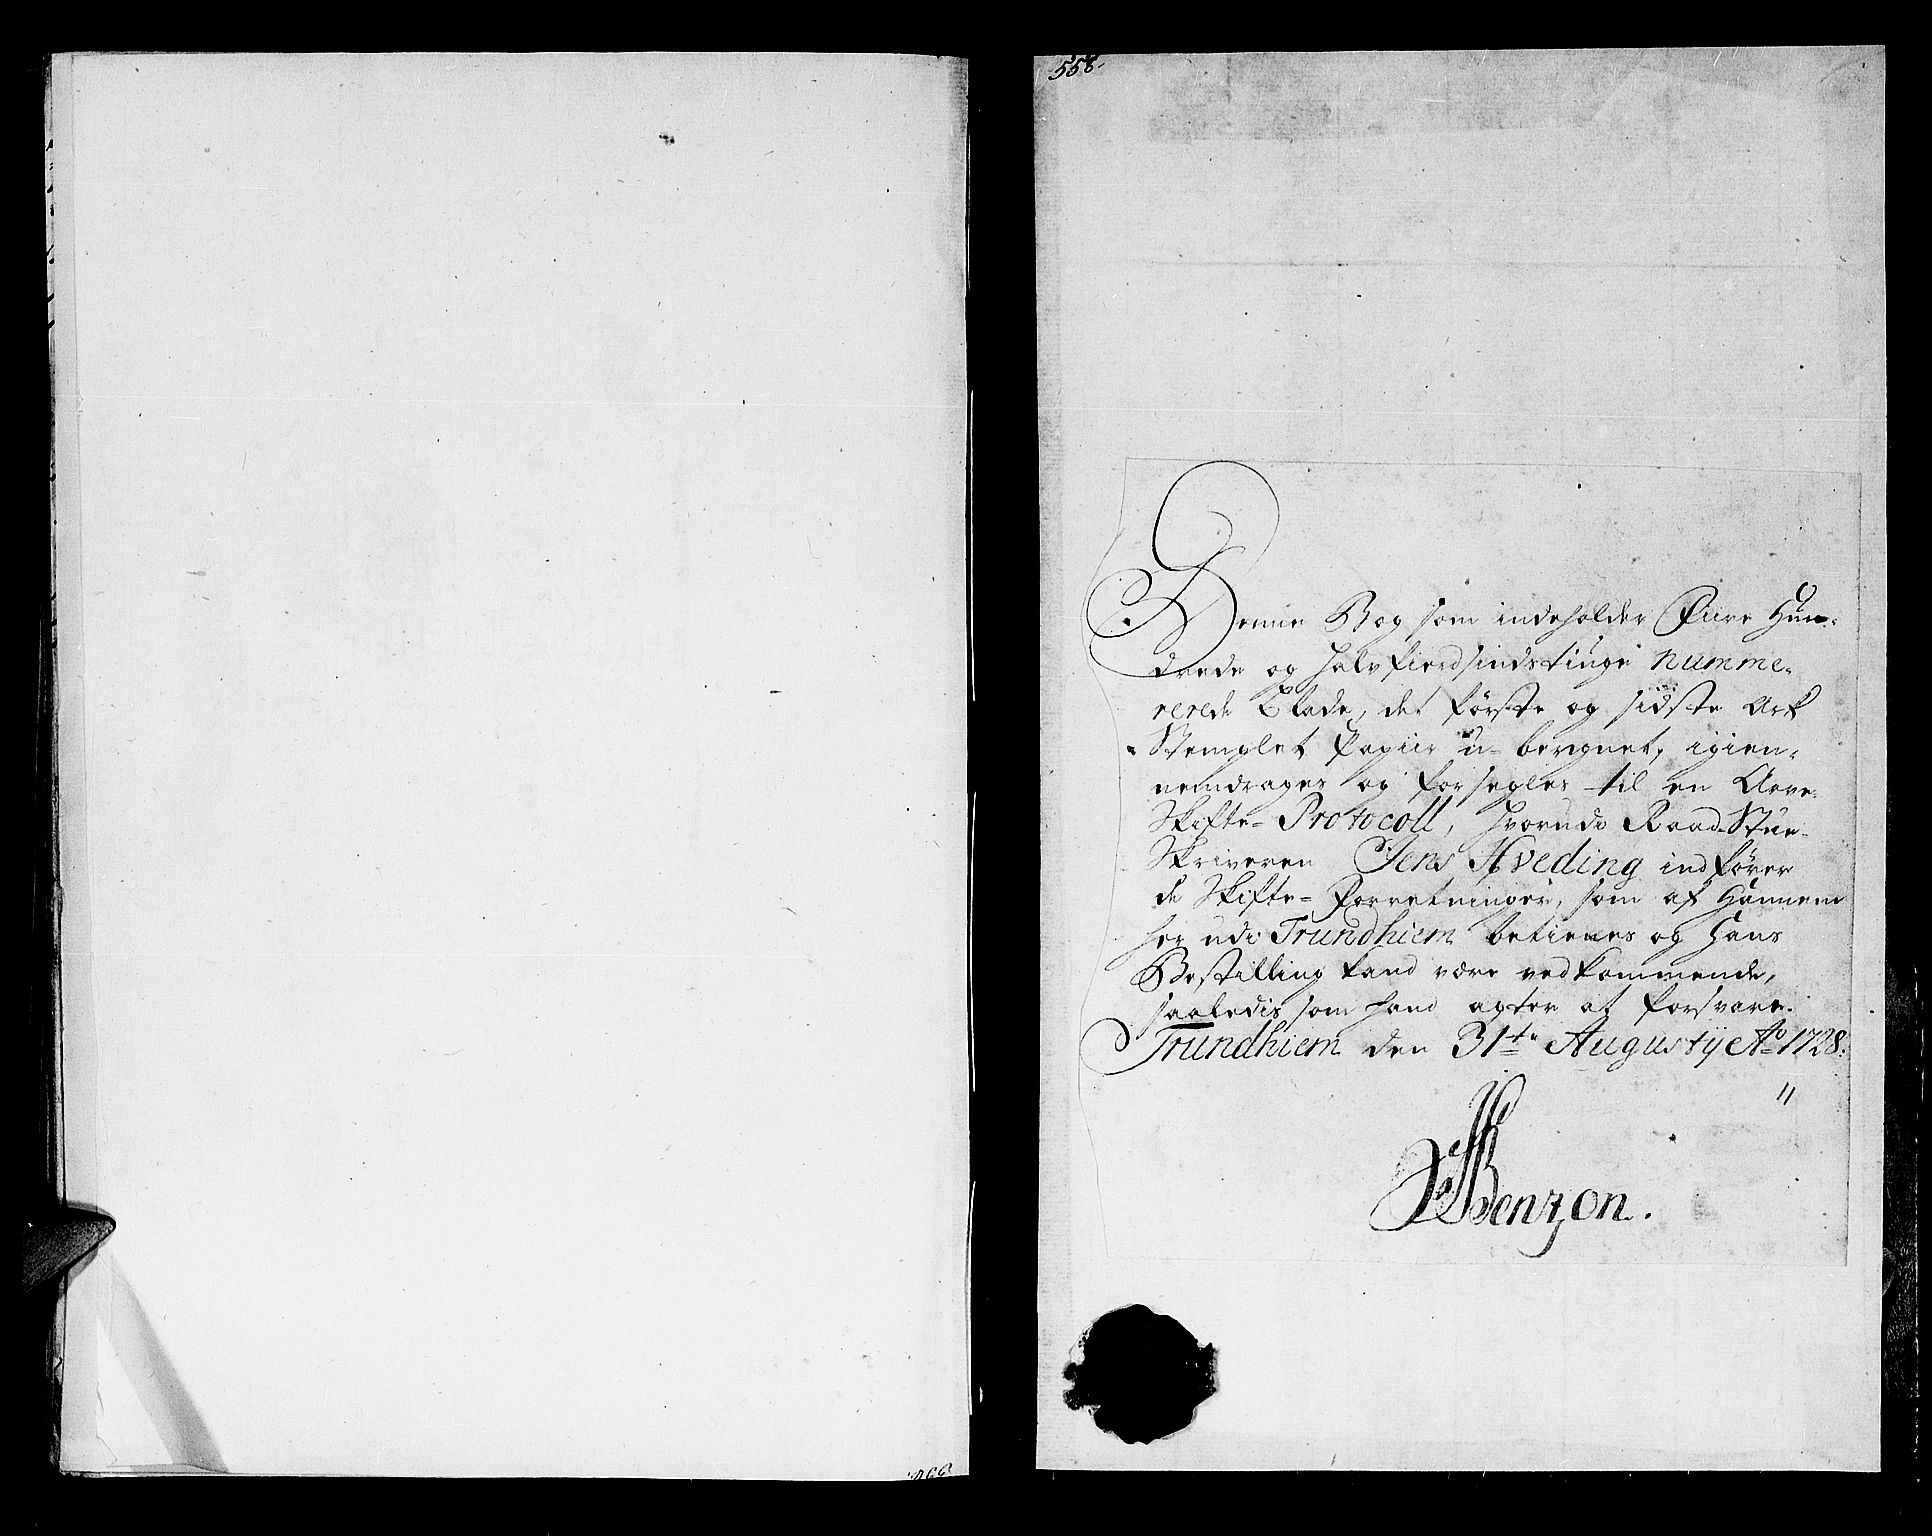 558.
Denne Bog som indeholder Fiire Hun-
drede og halvfierdsindstiuge Numme-
rerede Blade, det første og sidste Ark
Stemplet Papiir u-beregnet, igien-
nemdrages og forsegles til en Arve-
Skifte-Protocoll, hvorudi Raad-Stue-
Skriveren Jens Hveding indfører
de Skifte-Forretninger, som af Hannem
her udi Trundhiem betienes og hans
Bestilling kand være vedkommende,
saaledis som hand agter at forsvare.
Trundhiem den 31te Augustij Ao 1728.
Benzon.